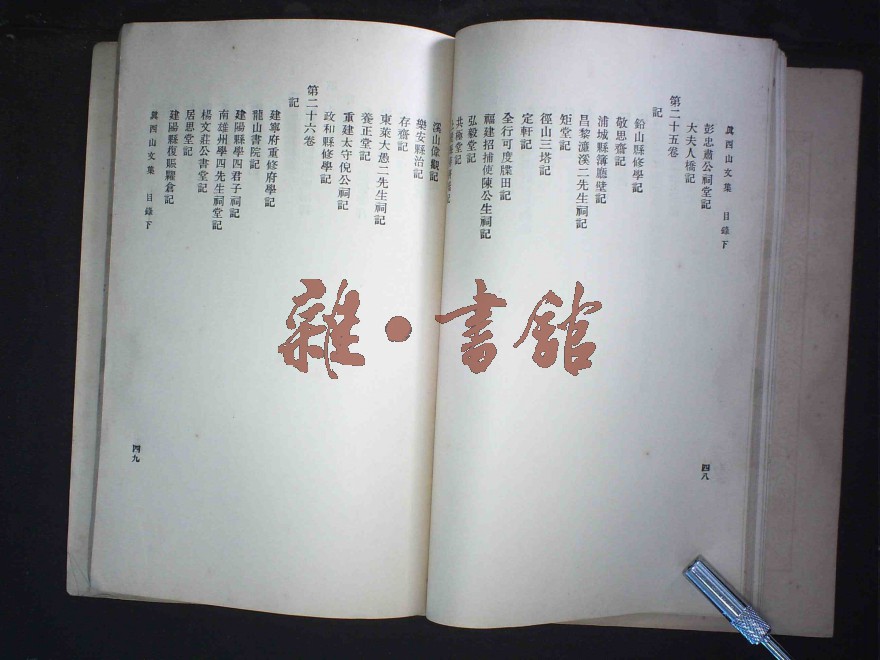 真西山文集 目錄下
彭忠肅公祠堂記
大夫人橋記
第二十五卷
記
鉛山縣修學記
敬思齋記
浦城縣簿廳壁記
昌黎濂溪二先生祠記
矩堂記
徑山三塔記
定軒記
全行可度牒田記
福建招捕使陳公生祠記
弘毅堂記
共極堂記
四八
溪山偉觀記
樂安縣治記
存齋記
東萊大愚二先生祠記
養正堂記
重建太守倪公祠記
政和縣修學記
第二十六卷
記
建寧府重修府學記
龍山書院記
建陽縣學四君子祠記
南雄州學四先生祠堂記
楊文莊公書堂記
居思堂記
建陽縣復賑糶倉記
真西山文集 目錄下
四九
雜·書館